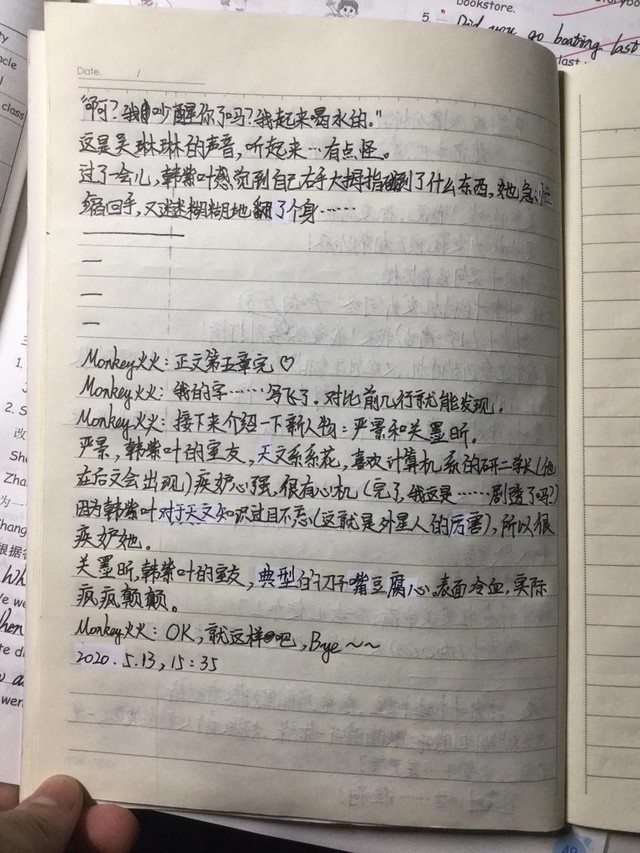 bookstore.
5.
Did you go boating last
Date. /
"啊？我吵醒你了吗？我起来喝水的。"
这是吴琳琳的声音，听起来…有点怪。
过了一会儿，韩紫叶感觉到自己右手大拇指碰到了什么东西，她急忙
缩回手，又迷迷糊糊地翻了个身……
一
一
一
Monkey火火：正文第五章完♡
Monkey火火：我的字……写飞了。对比前几行就能发现。
Monkey火火：接下来介绍一下新人物：严景和关墨昕。
严景，韩紫叶的室友，天文系系花，喜欢计算机系的研二学长(他
在后文会出现)疾妒心强，很有心机(完了，我这是……剧透了吗？)
因为韩紫叶对于天文知识过目不忘(这就是外星人的厉害)，所以很
疾妒她。
关墨昕，韩紫叶的室友，典型的刀子嘴豆腐心。表面冷血，实际
疯疯颠颠。
Monkey火火：OK，就这样吧，Bye～～
2020.5.13，15：35